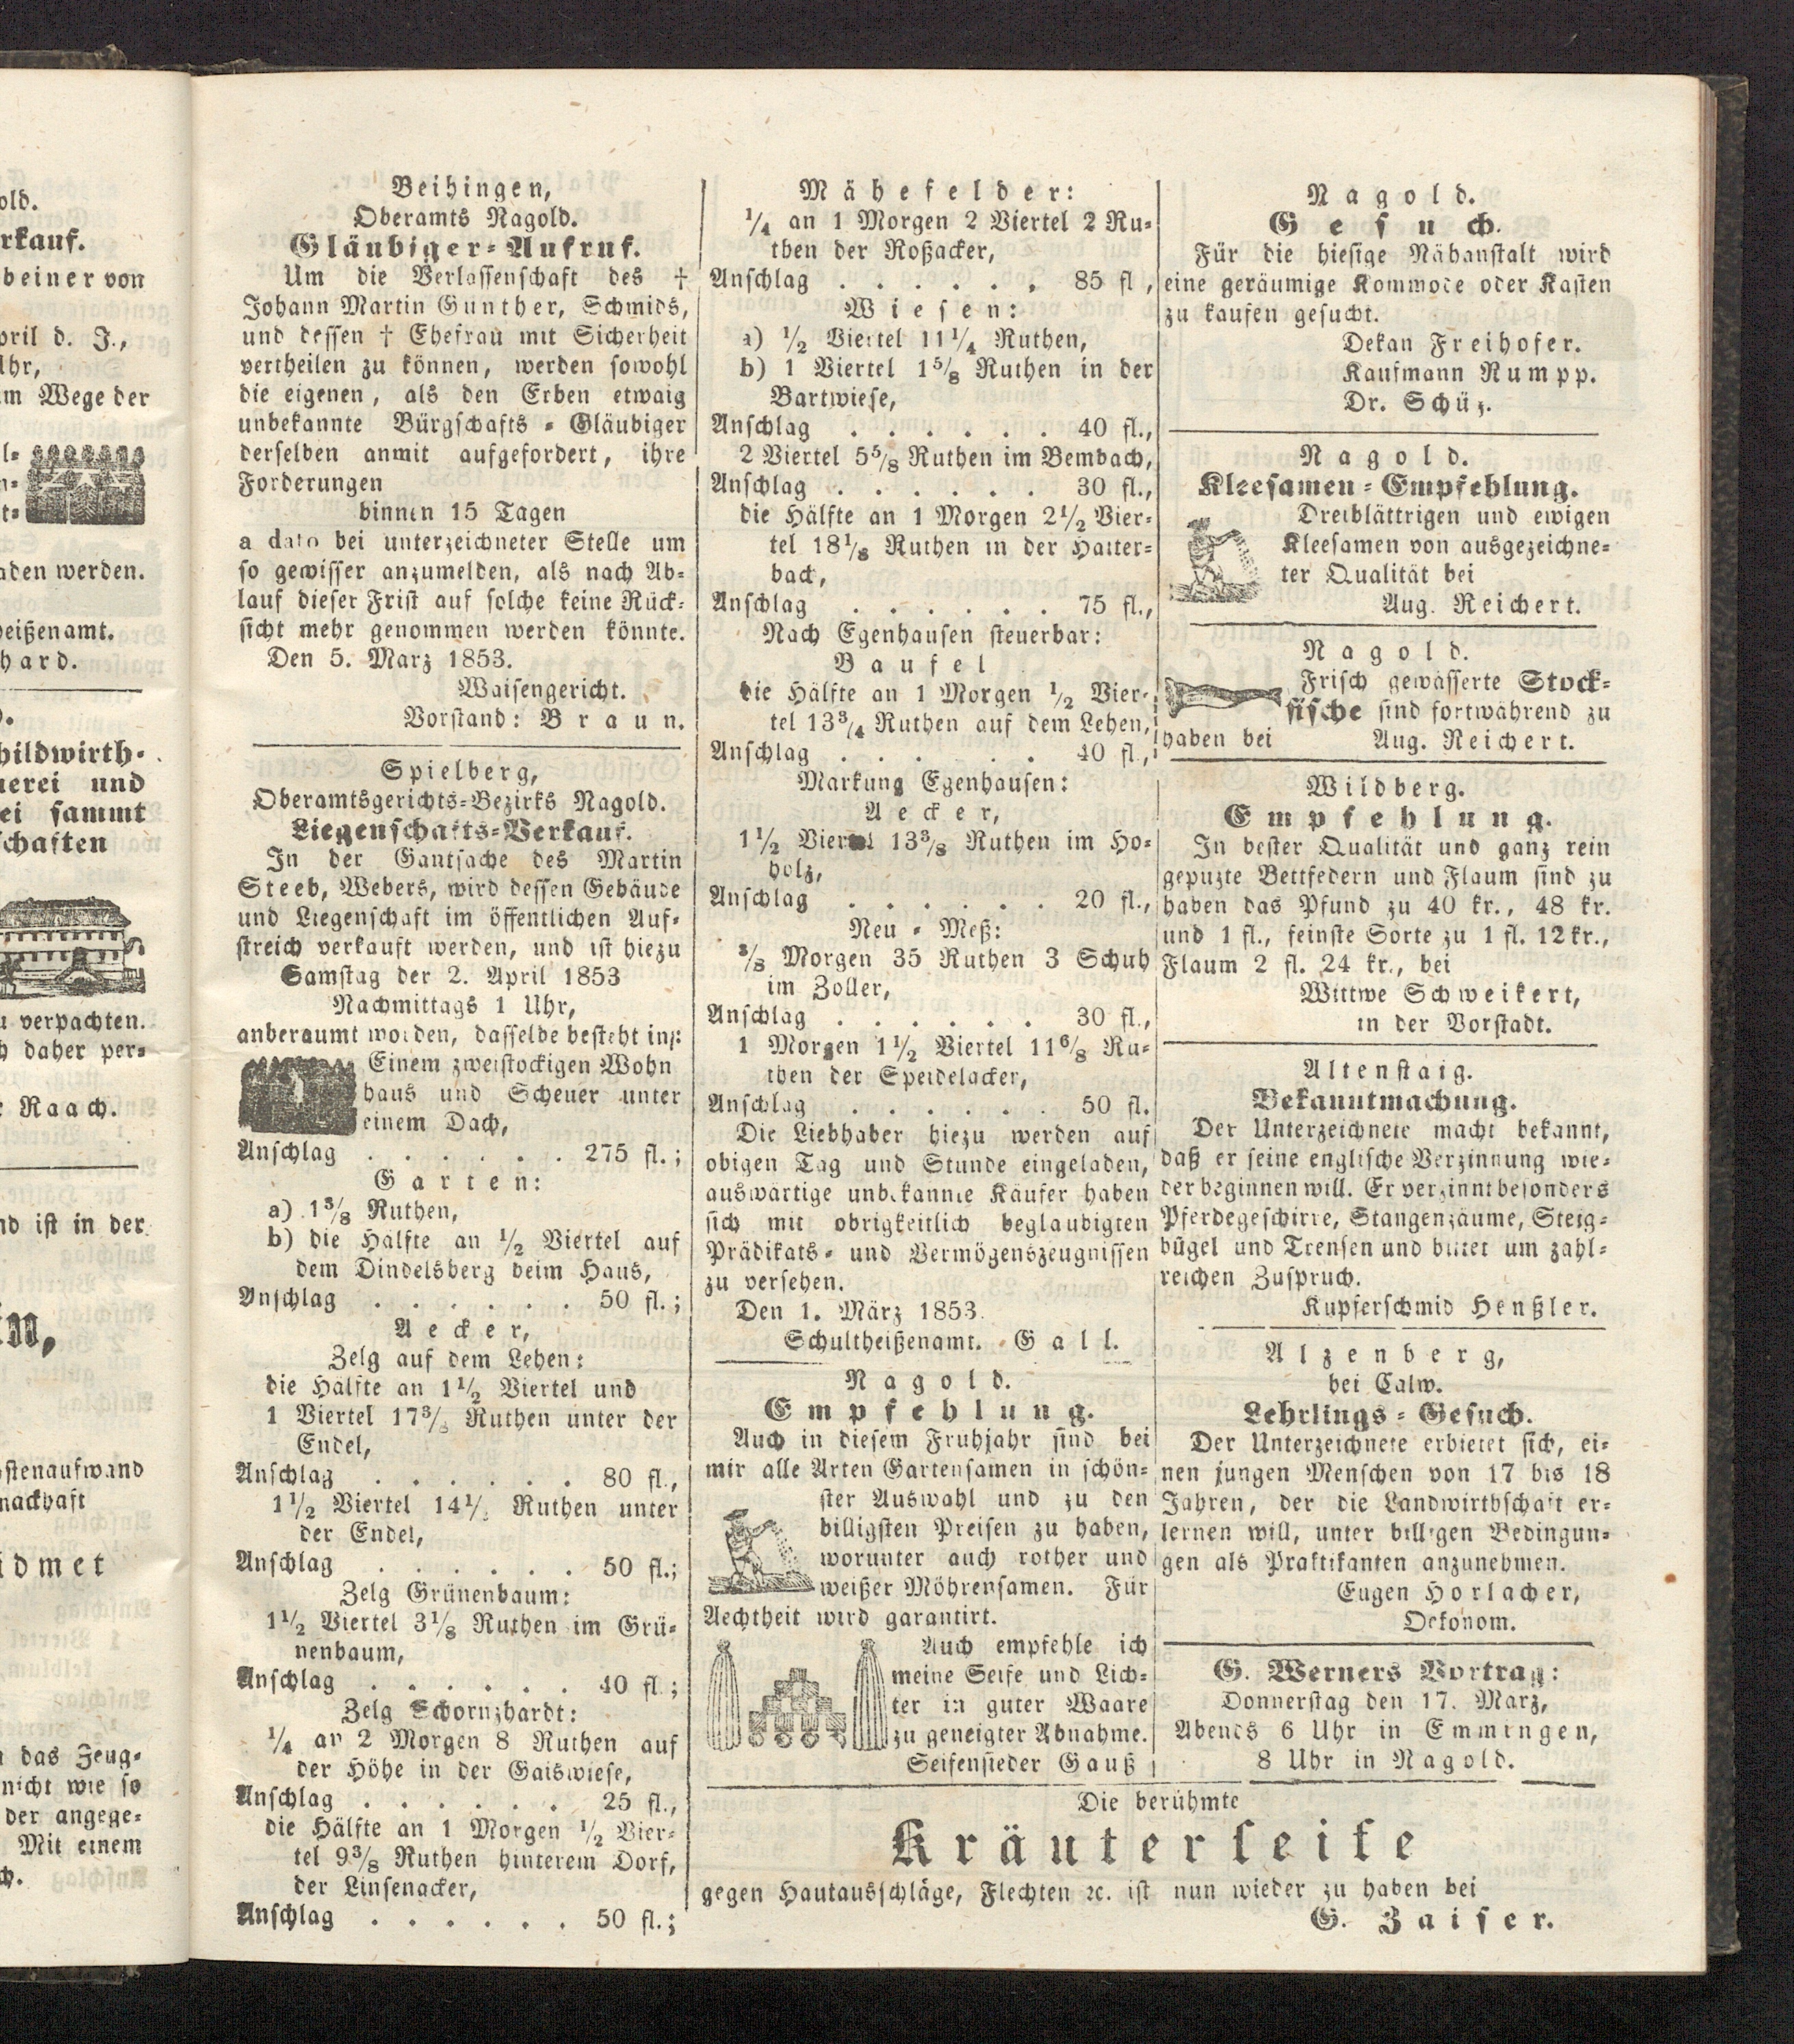 old.
rkauf.
beiner von
pril d. J.,
Uhr,
m Wege der
aden werden.
eißenamt.
hard.
hildwirth-
uerei und
ei sammt
schaften
u verpachten.
h daher per-
r Raach.
nd ist in der
in,
ostenaufwand
nackhaft
idmet
n das Zeug-
nicht wie so
der angege-
Mit einem
ch.
Beihingen,
Oberamts Nagold.
Gläubiger-Aufruf.
Um die Verlassenschaft des †
Johann Martin Gunther, Schmids,
und dessen † Ehefrau mit Sicherheit
vertheilen zu können, werden sowohl
die eigenen, als den Erben etwaig
unbekannte Bürgschafts-Gläubiger
derselben anmit aufgefordert, ihre
Forderungen
binnen 15 Tagen
a dato bei unterzeichneter Stelle um
so gewisser anzumelden, als nach Ab-
lauf dieser Frist auf solche keine Rück-
sicht mehr genommen werden könnte.
Den 5. März 1853.
Waisengericht.
Vorstand: Braun.
Spielberg,
Oberamtsgerichts-Bezirks Nagold.
Liegenschafts-Verkauf.
In der Gantsache des Martin
Steeb, Webers, wird dessen Gebäude
und Liegenschaft im öffentlichen Auf-
streich verkauft werden, und ist hiezu
Samstag der 2. April 1853
Nachmittags 1 Uhr,
anberaumt worden, dasselbe besteht in:
Einem zweistockigen Wohn
haus und Scheuer unter
einem Dach,
Anschlag . . . . . . 275 fl.;
Garten:
a) 1 3/8 Ruthen,
b) die Hälfte an 1/2 Viertel auf
dem Dindelsberg beim Haus,
Anschlag . . . . . . 50 fl.;
Aecker,
Zelg auf dem Lehen:
die Hälfte an 1 1/2 Viertel und
1 Viertel 17 Ruthen unter der
Endel,
Anschlag . . . . . . 80 fl.,
1 1/2 Viertel 14 Ruthen unter
der Endel,
Anschlag . . . . . . 50 fl.;
Zelg Grünenbaum:
1 1/2 Viertel 3 1/8 Ruthen im Grü-
nenbaum,
Anschlag . . . . . . 40 fl.;
Zelg Schornzhardt:
1/4 an 2 Morgen 8 Ruthen auf
der Höhe in der Gaiswiese,
Anschlag . . . . . . 25 fl.,
die Hälfte an 1 Morgen 1/2 Vier-
tel 9 3/8 Ruthen hinterem Dorf,
der Linsenacker,
Anschlag . . . . . . 50 fl.;
Mähefelder:
1/4 an 1 Morgen 2 Viertel 2 Ru-
then der Roßacker,
Anschlag . . . . . . 85 fl.,
Wiesen:
a) 1/2 Viertel 11 1/4 Ruthen,
b) 1 Viertel 1 5/8 Ruthen in der
Bartwiese,
Anschlag . . . . . . 40 fl.,
2 Viertel 5 5/8 Ruthen im Bembach,
Anschlag . . . . . . 30 fl.,
die Hälfte an 1 Morgen 2 1/2 Vier-
tel 18 1/8 Ruthen in der Haiter-
bach,
Anschlag . . . . . . 75 fl.,
Nach Egenhausen steuerbar:
Baufel
die Hälfte an 1 Morgen 1/2 Vier-
tel 13 3/4 Ruthen auf dem Lehen,
Anschlag . . . . . . 40 fl.,
Markung Egenhausen:
Aecker,
1 1/2 Viertel 13 3/8 Ruthen im Ho-
holz,
Anschlag . . . . . . 20 fl.,
Neu-Meß:
3/8 Morgen 35 Ruthen 3 Schuh
im Zoller,
Anschlag . . . . . . 30 fl.,
1 Morgen 1 1/2 Viertel 11 6/8 Ru-
then der Speidelacker,
Anschlag . . . . . . 50 fl.
Die Liebhaber hiezu werden auf
obigen Tag und Stunde eingeladen,
auswärtige unbekannte Käufer haben
sich mit obrigkeitlich beglaubigten
Prädikats- und Vermögenszeugnissen
zu versehen.
Den 1. März 1853.
Schultheißenamt. Gall.
Nagold.
Empfehlung.
Auch in diesem Fruhjahr sind bei
mir alle Arten Gartensamen in schön-
ster Auswahl und zu den
billigsten Preisen zu haben,
worunter auch rother und
weißer Möhrensamen. Für
Aechtheit wird garantirt.
Auch empfehle ich
meine Seife und Lich-
ter in guter Waare
zu geneigter Abnahme.
Seifensieder Gauß
Nagold.
Gesuch.
Für die hiesige Nähanstalt wird
eine geräumige Kommode oder Kasten
zu kaufen gesucht.
Dekan Freihofer.
Kaufmann Rumpp.
Dr. Schüz.
Nagold.
Kleesamen-Empfehlung.
Dreiblättrigen und ewigen
Kleesamen von ausgezeichne-
ter Qualität bei
Aug. Reichert.
Nagold.
Frisch gewässerte Stock-
fische sind fortwährend zu
haben bei Aug. Reichert.
Wildberg.
Empfehlung.
In bester Qualität und ganz rein
gepuzte Bettfedern und Flaum sind zu
haben das Pfund zu 40 kr., 48 kr.
und 1 fl., feinste Sorte zu 1 fl. 12 kr.,
Flaum 2 fl. 24 kr., bei
Wittwe Schweikert,
in der Vorstadt.
Altenstaig.
Bekanntmachung.
Der Unterzeichnete macht bekannt,
daß er seine englische Verzinnung wie-
der beginnen will. Er verzinnt besonders
Pferdegeschirre, Stangenzäume, Steig-
bügel und Trensen und bittet um zahl-
reichen Zuspruch.
Kupferschmid Henßler.
Alzenberg,
bei Calw.
Lehrlings-Gesuch.
Der Unterzeichnete erbietet sich, ei-
nen jungen Menschen von 17 bis 18
Jahren, der die Landwirthschaft er-
lernen will, unter billigen Bedingun-
gen als Praktikanten anzunehmen.
Eugen Horlacher,
Oekonom.
G. Werners Vortrag:
Donnerstag den 17. März,
Abends 6 Uhr in Emmingen,
8 Uhr in Nagold.
Die berühmte
Kräuterseife
gegen Hautausschläge, Flechten ꝛc. ist nun wieder zu haben bei
G. Zaiser.